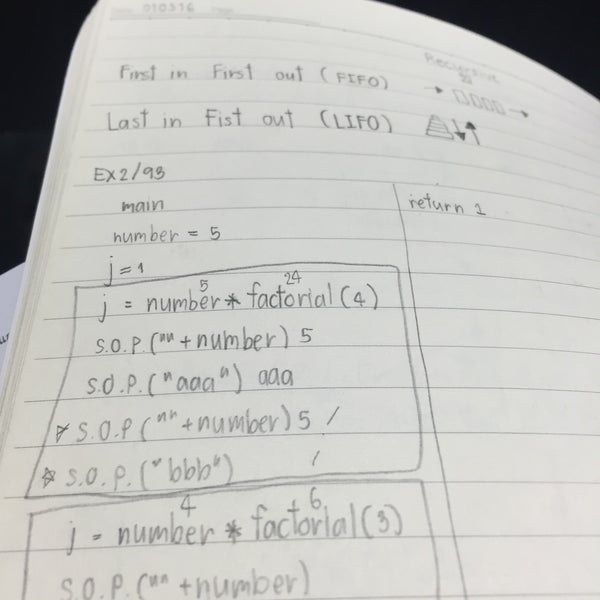 010316
Recursive
First in First out (FIFO)
Last in Fist out (LIFO)
EX2/93
main
number = 5
j = 1
5 24
j = number * factorial (4)
S.O.P. ("" + number) 5
S.O.P. ("aaa") aaa
S.O.P ("" + number) 5 /
S.O.P. ("bbb") /
4 6
j = number * factorial (3)
S.O.P. ("" + number)
return 1